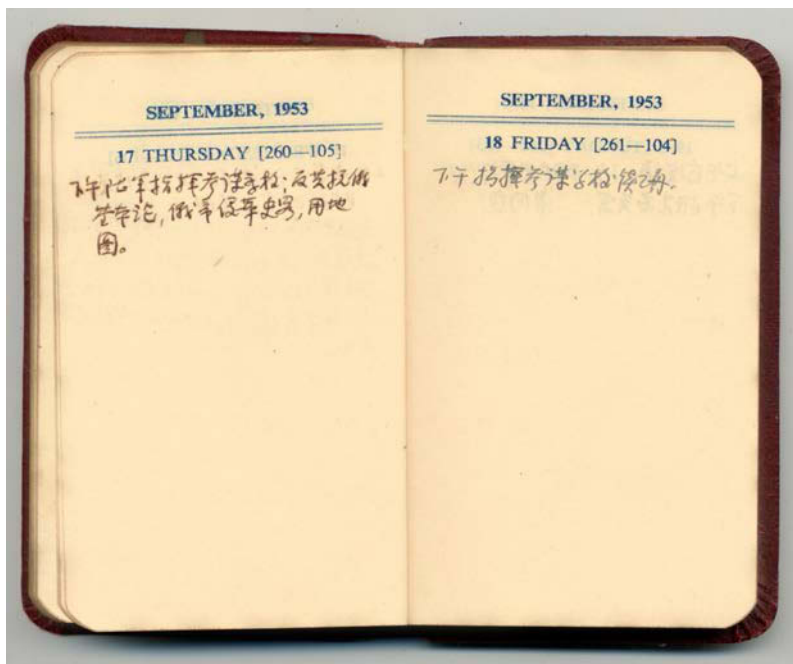 SEPTEMBER, 1953
17 THURSDAY [260—105]
下午陆军指挥参谋学校:反共抗俄
基本论,俄帝侵华史略,用地
图。
SEPTEMBER, 1953
18 FRIDAY [261—104]
下午指挥参谋学校续讲。